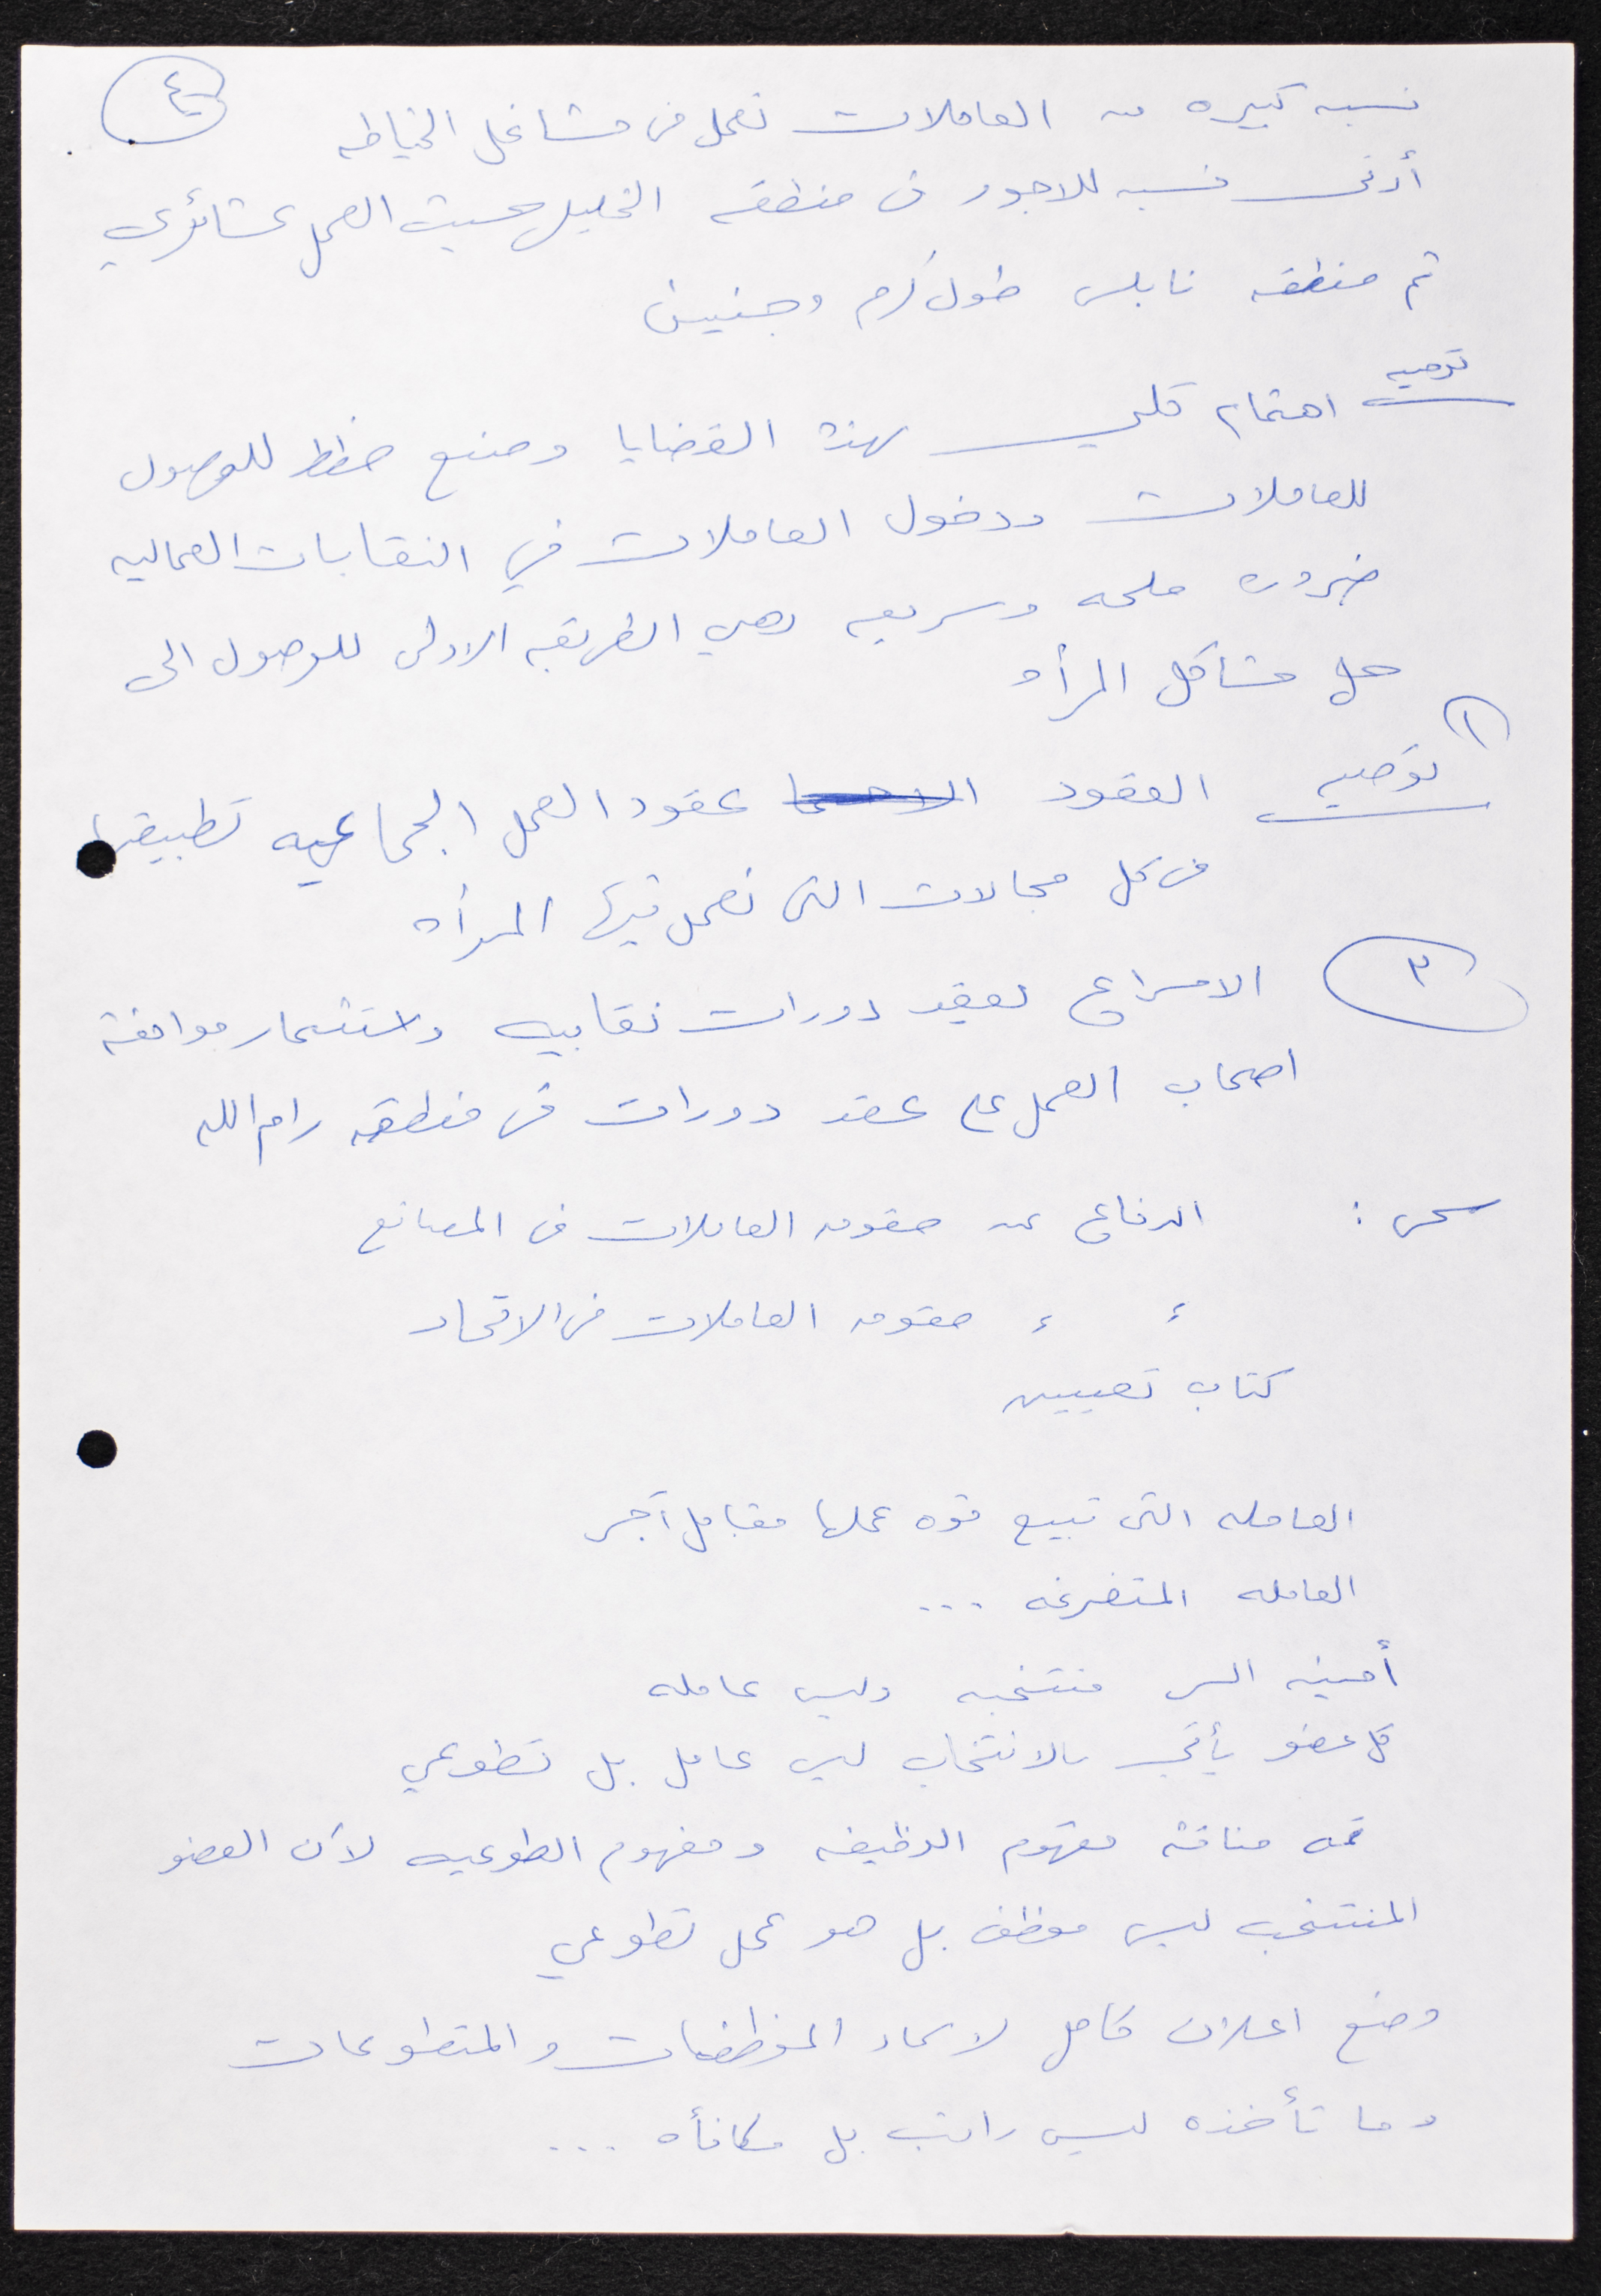 ٤
نسبه كبيره من العاملات تعمل في مشاغل الخياطه
أدنى نسبه للاجور في منطقه الخليل حيث العمل عشائري
ثم منطقه نابلس طولكرم وجنين
توصيه اهتمام كلي بهذه القضايا وضع خطط للوصول
للعاملات ودخول العاملات في النقابات العماليه
ضروره ملحه وسريعه وهي الطريقه الاولى للوصول الى
حل مشاكل المرأه
١
توصيه العقود عقود العمل الجماعيه تطبيقها
في كل مجالات التي تعمل فيها المرأه
٣ الاسراع لعقد دورات نقابيه واستثمار موافقة
اصحاب العمل على عقد دورات في منطقه رام الله
: الدفاع عن حقوق العاملات في المصانع
ء ء حقوق العاملات في الاتحاد
كتاب تعيين
العامله التي تبيع قوه عملها مقابل أجر
العامله المتفرغه ...
أمينه السر منتخبه وليس عامله
كل عضو يأتي بالانتخاب ليس عامل بل تطوعي
مفهوم الوظيفه ومفهوم الطوعيه لأن العضو
المنتخب ليس موظف بل هو عمل تطوعي
وضع اعلان كامل لاسماء الموظفات والمتطوعات
وما تأخذه ليس راتب بل مكافأه ...